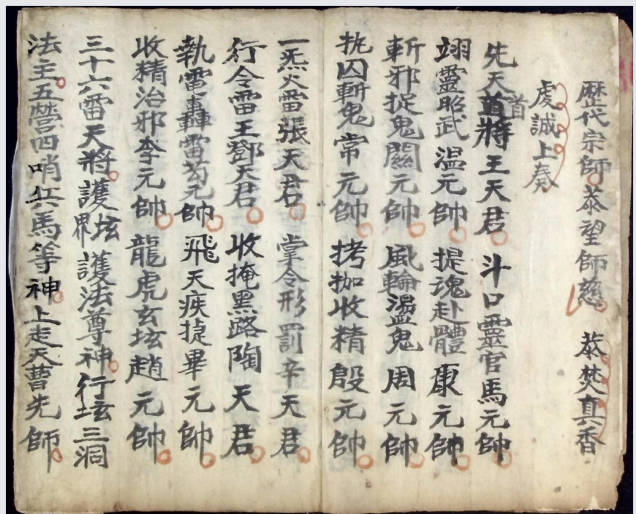 歷代宗師恭望師慈　恭焚真香
虔誠上奏
先天首將王天君　斗口靈官馬元帥
首
翊靈昭武溫元帥　提魂赴體康元帥
斬邪捉鬼關元帥　風輪盪鬼周元帥
执囚斬鬼常元帥　拷抝收精殷元帥
一炁火雷張天君　掌令形罰辛天君
行令雷王鄧天君　收掩黑路陶天君
執雷轟雷苟元帥　飛天疾捷畢元帥
收精治邪李元帥　龍虎玄坛趙元帥
三十六雷天將護坛界　護法尊神行坛三洞
法主五營四哨兵馬等神上走天曹先師